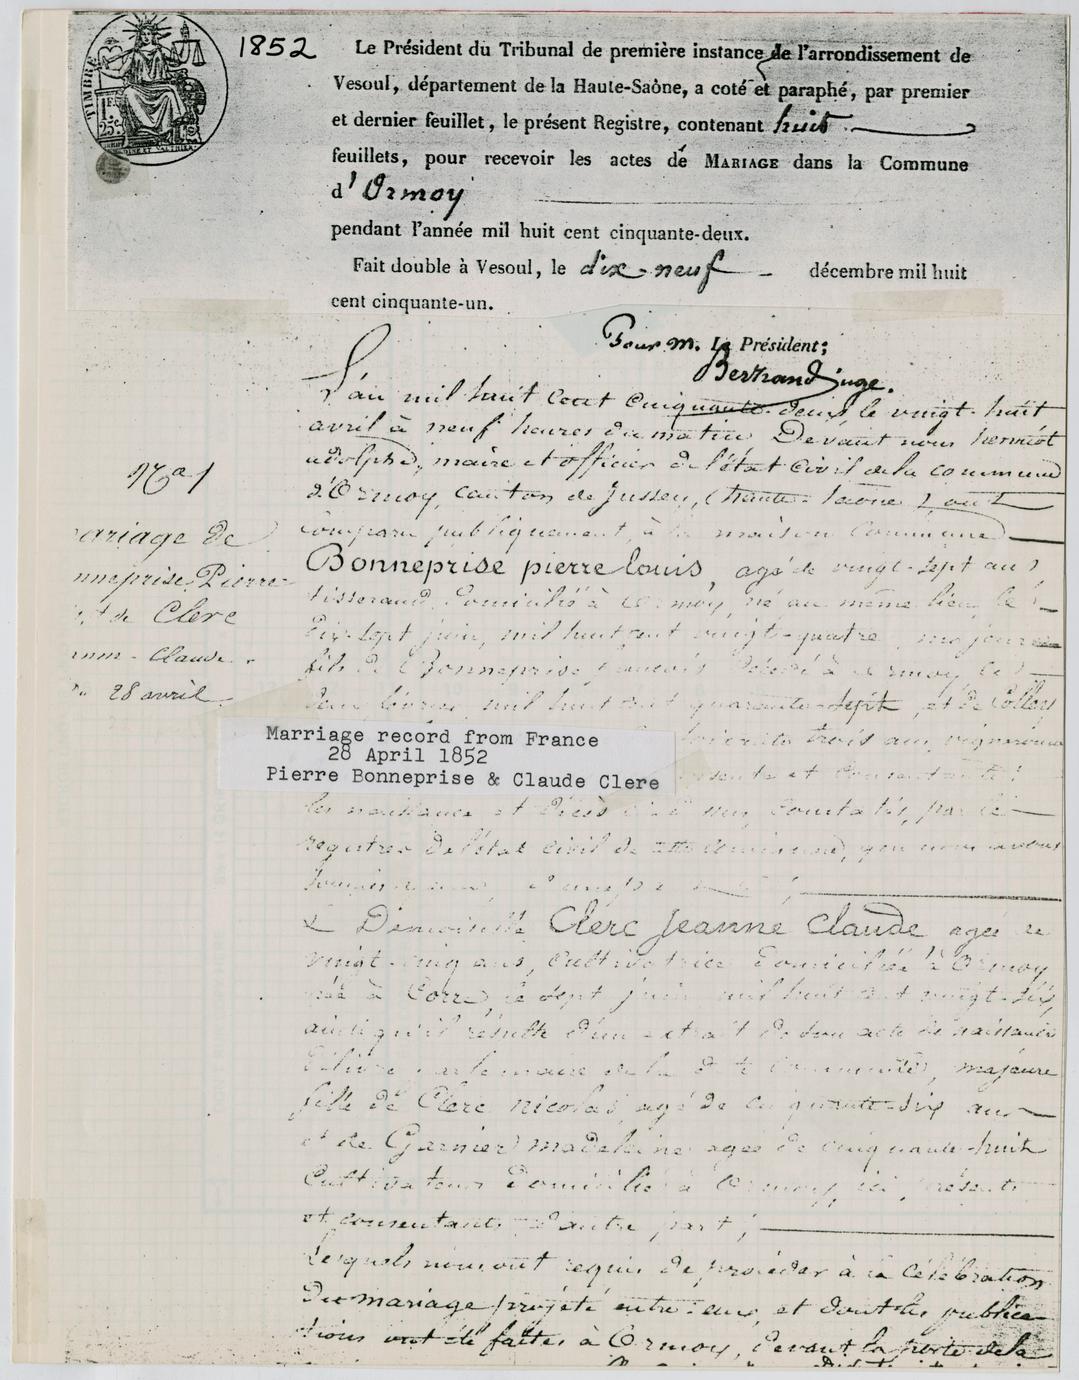 TIMBRE
1 F.
25 c.
1852
Le Président du Tribunal de première instance de l'arrondissement de
Vesoul, département de la Haute-Saône, a coté et paraphé, par premier
et dernier feuillet, le présent Registre, contenant huit
feuillets, pour recevoir les actes de MARIAGE dans la Commune
d'Ormoy
pendant l'année mil huit cent cinquante-deux.
Fait double à Vesoul, le dix-neuf décembre mil huit
cent cinquante-un.
Pour M. Le Président;
Bertrand Juge.
L'an mil huit cent cinquante-deux le vingt-huit
avril à neuf heures du matin Devant nous
adolphe, maire et officier de l'état civil de la commune
d'Ormoy, canton de Jussey, (haute-Saone) ont
comparu publiquement, à la maison Commune
Bonneprise pierre louis, agé de vingt-sept ans
tisserand, Domicilié à Ormoy, né au même lieu, le
Dix-sept juin, mil huit cent vingt-quatre, majeur
fils de Bonneprise françois Décédé à ormoy le
deux février mil huit cent quarante-sept, et de Colley
trois ans, vigneronne
présente et Consentante
les naissance et Décès constatés, par le
registres De l'état civil de cette Commune, que nous avons
d'une part
Demoiselle Clerc Jeanne Claude agée de
vingt-cinq ans, Cultivatrice Domiciliée à Ormoy
née à Corre, le sept juin mil huit cent vingt-six,
ainsi qu'il résulte d'un extrait de son acte de naissance
Délivré par le maire de la dite Commune, majeure
fille de Clerc nicolas, agé de cinquante-six ans
et de Garnier madeleine agée de cinquante-huit
Cultivateurs Domiciliés à Ormoy, ici présents
et consentants D'autre part;
Lesquels nous ont requis de procéder à la Célébration
Du mariage projeté entre-eux, et dont les publica-
tions ont été faites à Ormoy, Devant la porte de la
No 1
ariage de
nneprise Pierre
et de Clerc
Claude
28 avril
Marriage record from France
28 April 1852
Pierre Bonneprise & Claude Clere